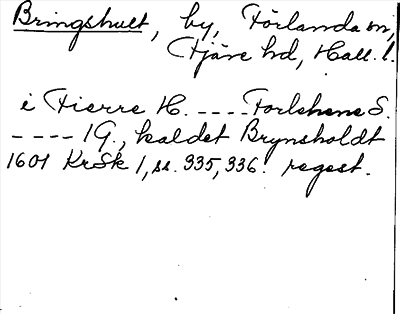 Bringshult, by, Förlanda sn,
Fjäre hd, Hall. l.
i Fierre H. ---- Forlshene S.
---- 1 G., kaldet Brynsholdt
1601 KrSk 1, s. 335, 336. regest.